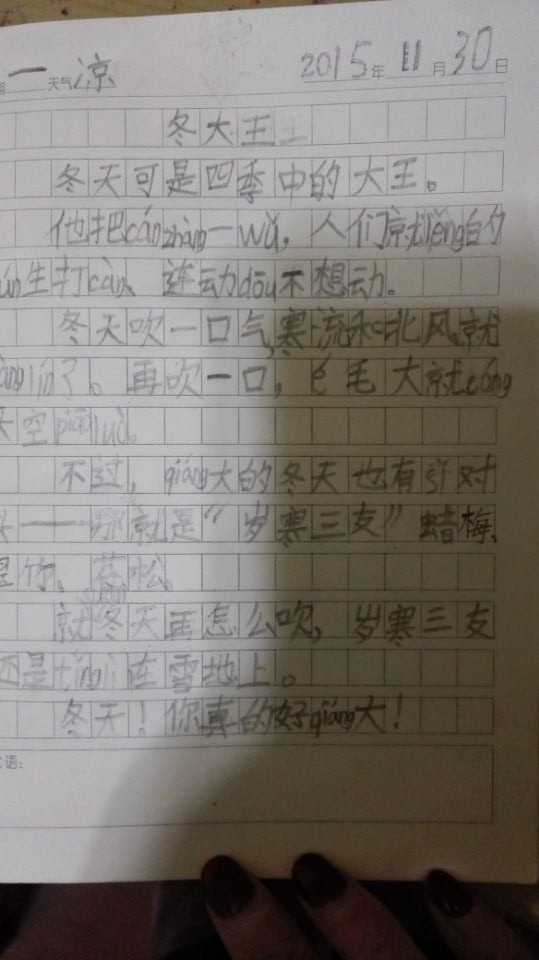 一 天气 凉 2015年 11月30日
冬大王
冬天可是四季中的大王。
他把cánzhàng一wǔ，人们就lěng的
生打càn、连动dōu不想动。
冬天吹一口气,寒流和北风就
lín了。再吹一口，é毛大就cóng
天空piāoluò。
不过，qiáng大的冬天也有 对
——那就是“岁寒三友”蜡梅、
是竹、 松。
就冬天再怎么吹，岁寒三友
还是 在雪地上。
冬天！你真的好qiáng大！
语：